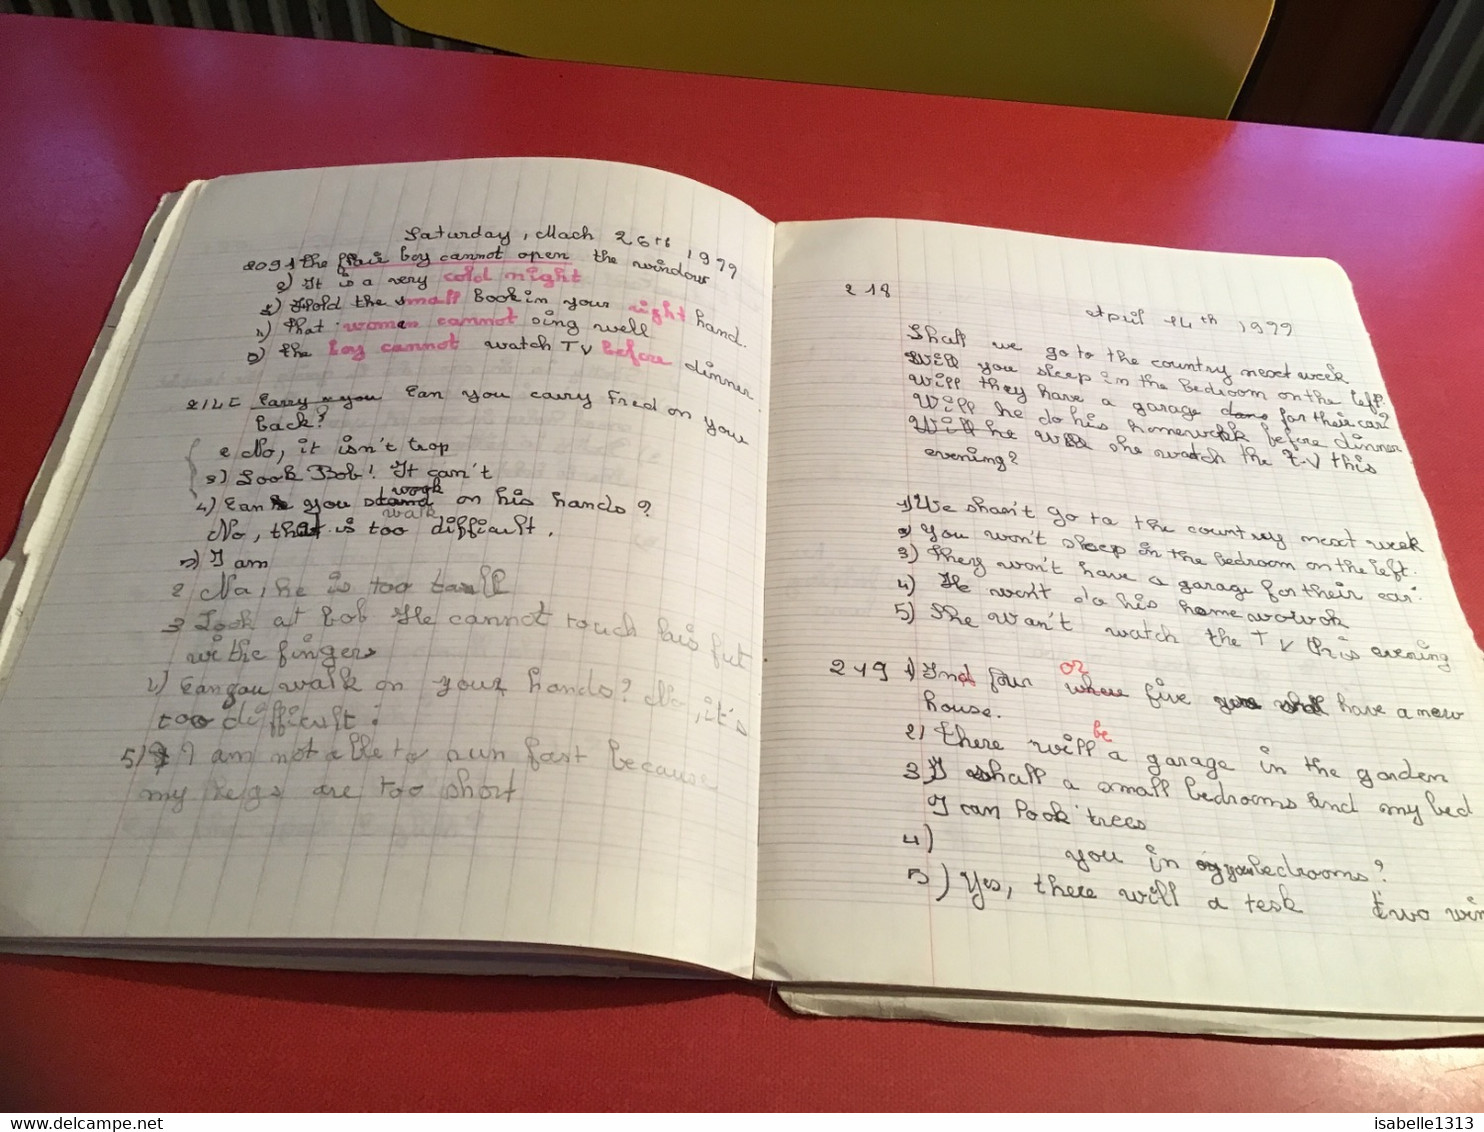 Saturday, Mach 26th 1999
209 1 the boy cannot open the window
2) It is a very cold night
3) Hold the small book in your right hand.
4) that woman cannot sing well
5) the boy cannot watch TV before dinner.
214 Carry you Can you carry Fred on your
back?
2 No, it isn't trop
3) Look Bob! It can't
work
4) Can you stand on his hands?
walk
No, that is too difficult.
5) I am
2 No, he is too tall
3 Look at bob He cannot touch his fut
wi the fingers
4) Can you walk on your hands? No, it's
too difficult!
5) I am not able to run fast because
my legs are too short
218
April 14th 1999
Shall we go to the country next week
Will you sleep in the bedroom on the left.
Will they have a garage dans for their car?
Will he do his homework before dinner
Will he will she watch the T.V this
evening?
1) We shan't go to the country next week
2) You won't sleep in the bedroom on the left.
3) They won't have a garage for their car.
4) He won't do his homewowok
5) She wan't watch the TV this evening
or
219 1) In four where five have a new
house.
be
2) There will a garage in the garden
3) I shall a small bedrooms and my bed
I can look trees
4) you in bedrooms?
5) Yes, there will a tesk two win
delcampe.net
isabelle1313